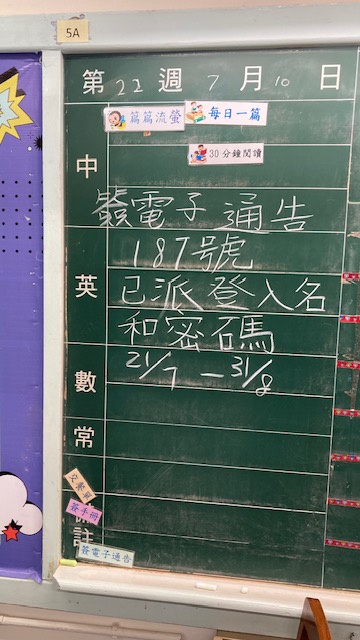 5A
第 22 週 7 月 10 日
篇篇流螢 每日一篇
30分鐘閱讀
中
簽電子通告
187號
英
已派登入名
和密碼
21/7 — 31/8
數
常
簽手冊
註
簽電子通告